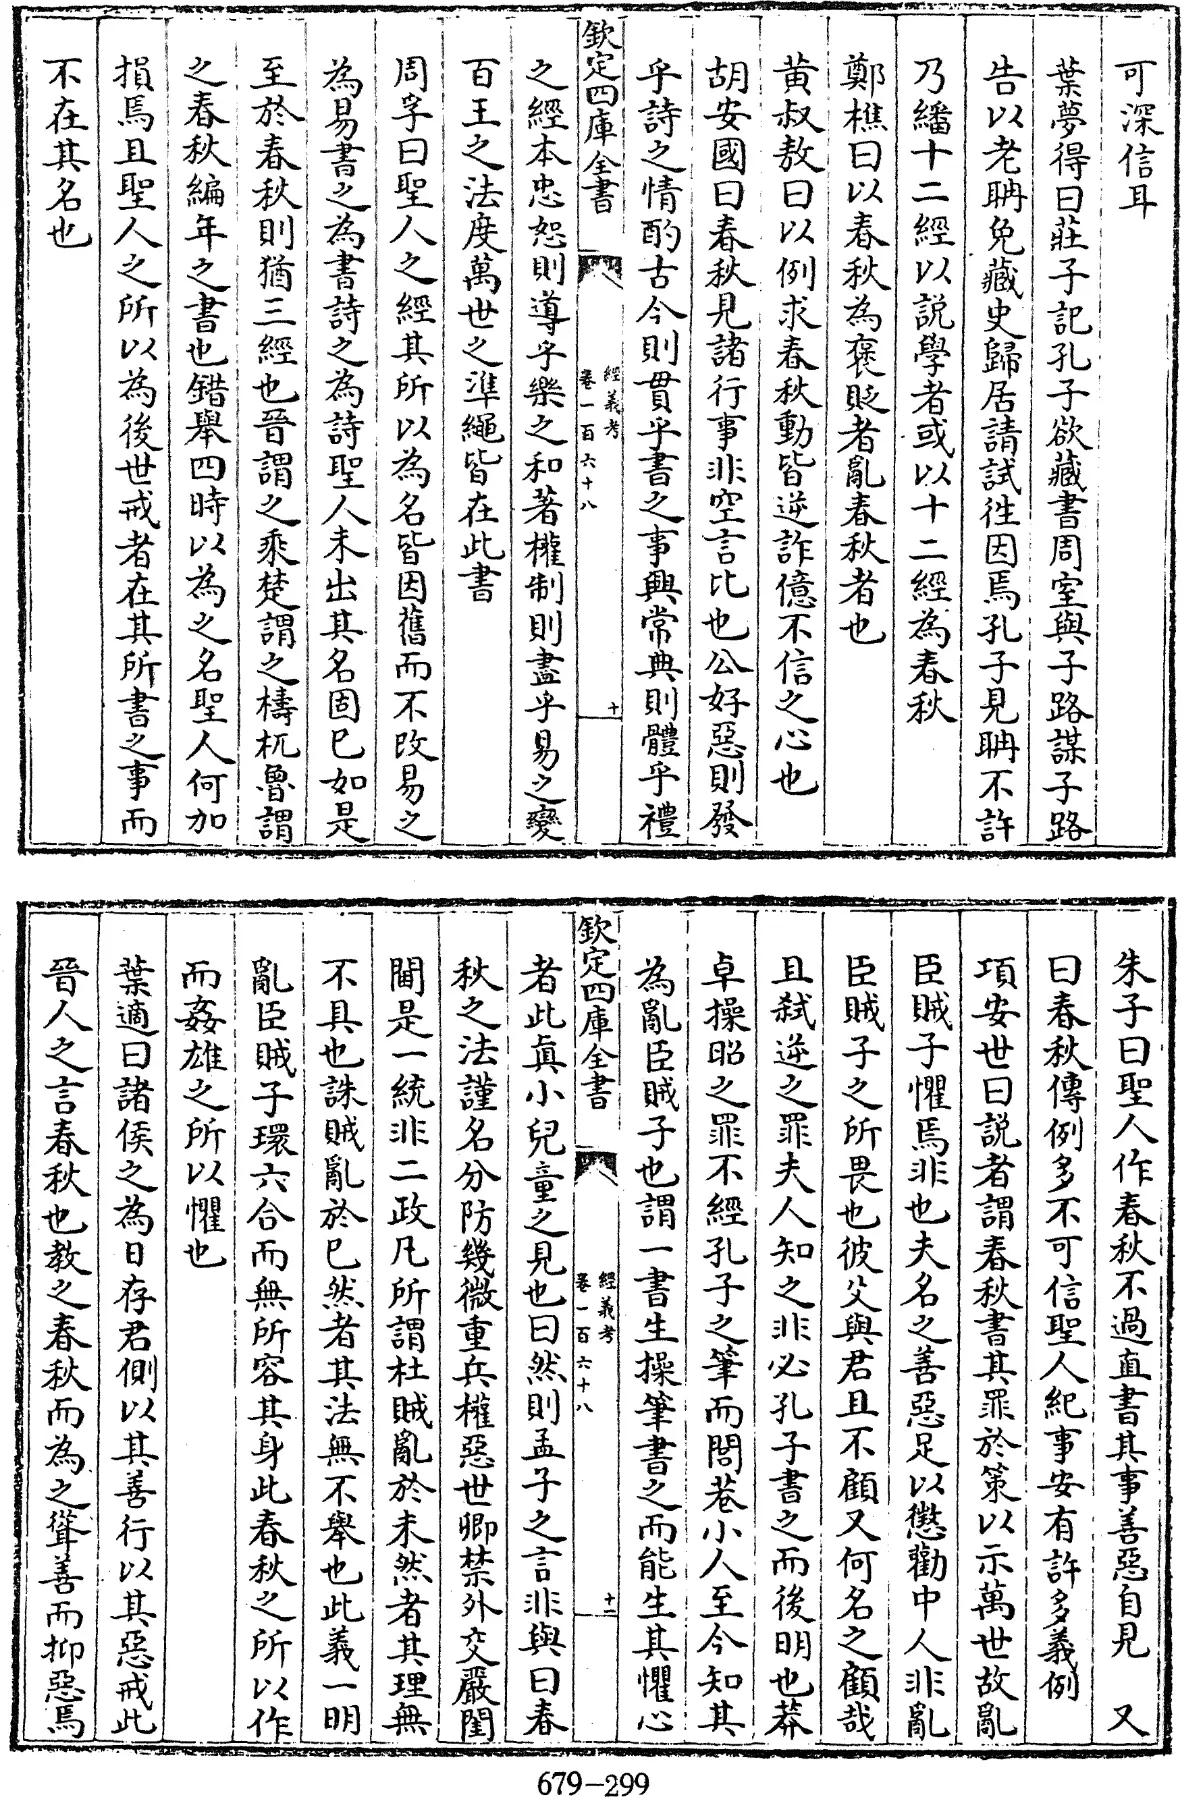 可深信耳
葉夢得曰莊子記孔子欲藏書周室與子路謀子路
告以老聃免藏史歸居請試徃因焉孔子見聃不許
乃繙十二經以説學者或以十二經為春秋
鄭樵曰以春秋為褒貶者亂春秋者也
黄叔敖曰以例求春秋動皆逆詐億不信之心也
胡安國曰春秋見諸行事非空言比也公好惡則發
乎詩之情酌古今則貫乎書之事興常典則體乎禮
欽定四庫全書
經義考
卷一百六十八
十
之經本忠恕則導乎樂之和著權制則盡乎易之變
百王之法度萬世之準繩皆在此書
周孚曰聖人之經其所以為名皆因舊而不改易之
為易書之為書詩之為詩聖人未出其名固已如是
至於春秋則猶三經也晉謂之乘楚謂之檮杌魯謂
之春秋編年之書也錯舉四時以為之名聖人何加
損焉且聖人之所以為後世戒者在其所書之事而
不在其名也
朱子曰聖人作春秋不過直書其事善惡自見 又
曰春秋傳例多不可信聖人紀事安有許多義例
項安世曰説者謂春秋書其罪於策以示萬世故亂
臣賊子懼焉非也夫名之善惡足以懲勸中人非亂
臣賊子之所畏也彼父與君且不顧又何名之顧哉
且弑逆之罪夫人知之非必孔子書之而後明也莽
卓操昭之罪不經孔子之筆而閭巷小人至今知其
為亂臣賊子也謂一書生操筆書之而能生其懼心
欽定四庫全書
經義考
卷一百六十八
十一
者此真小兒童之見也曰然則孟子之言非與曰春
秋之法謹名分防幾微重兵權惡世卿禁外交嚴閨
閫是一統非二政凡所謂杜賊亂於未然者其理無
不具也誅賊亂於已然者其法無不舉也此義一明
亂臣賊子環六合而無所容其身此春秋之所以作
而姦雄之所以懼也
葉適曰諸侯之為日存君側以其善行以其惡戒此
晉人之言春秋也教之春秋而為之聳善而抑惡焉
679-299